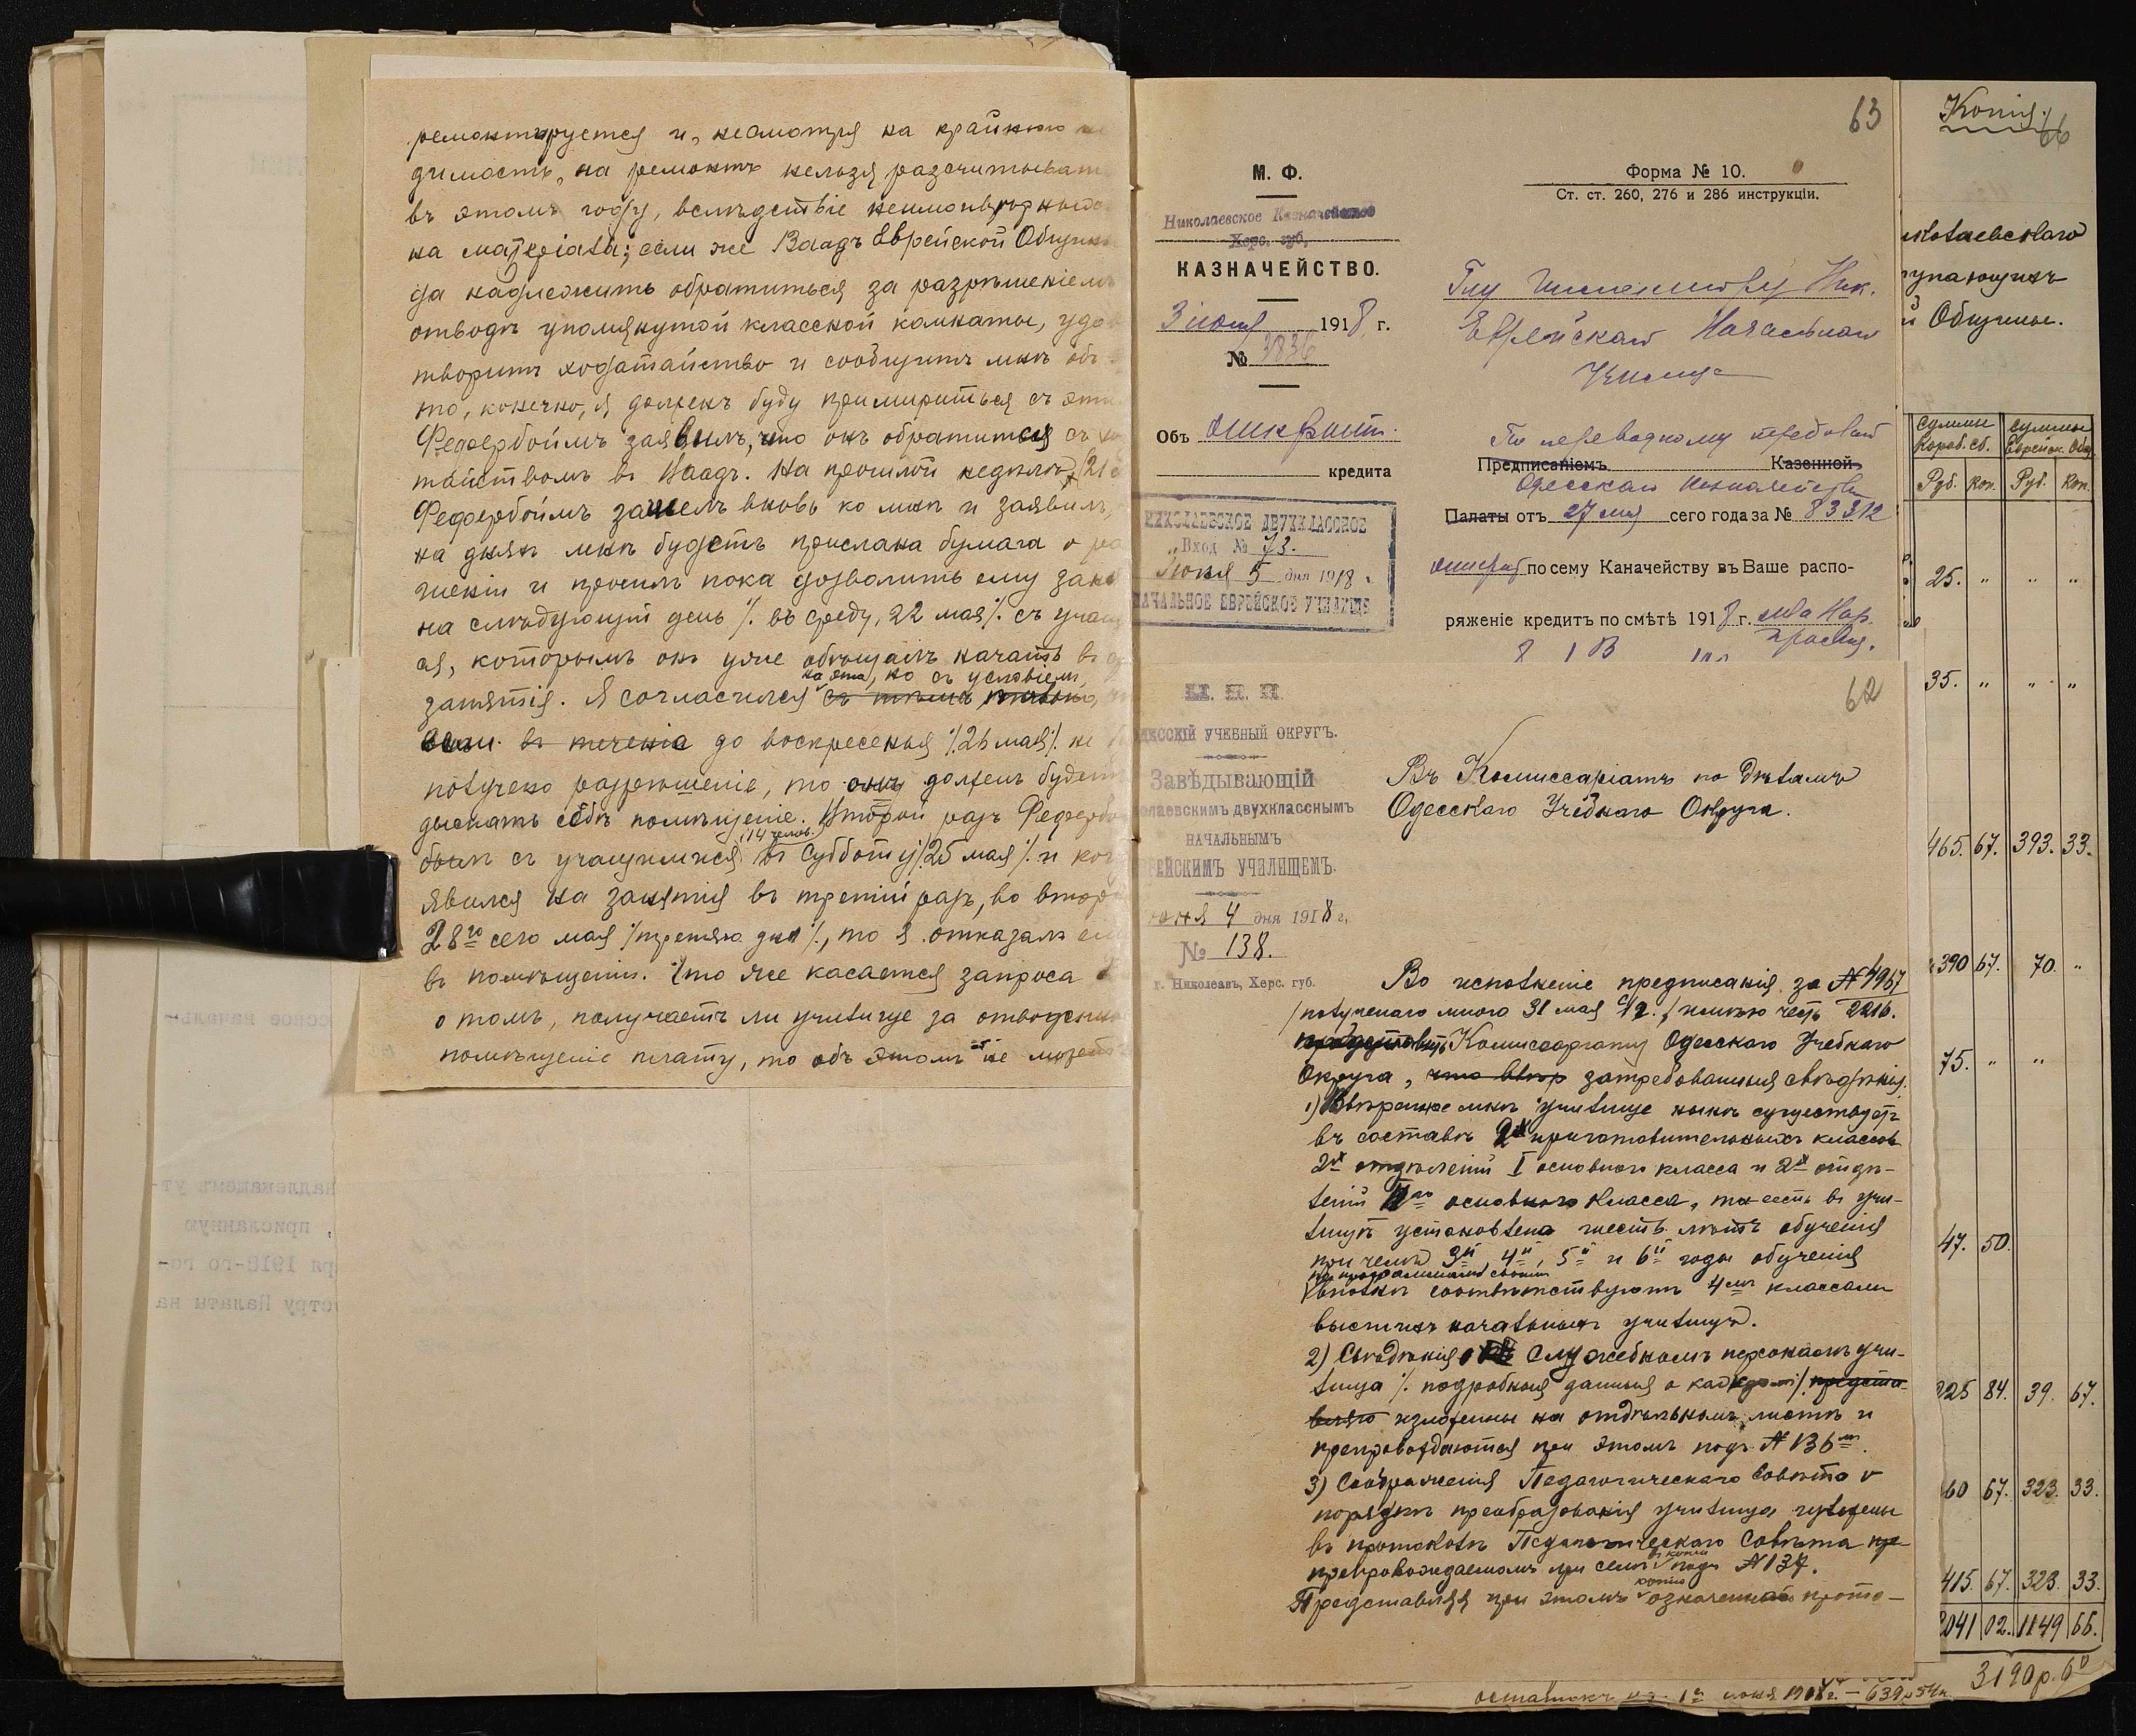 ремонтируется и, несмотря на крайнюю не
димость, на ремонтъ нельзя разсчитыват
въ этомъ году, вслѣдствіе неимовѣрныхъ
на матеріала; если же Ваадъ Еврейской Общины
да надлежитъ обратиться за разрѣшеніемъ
отводѣ упомянутой классной комнаты, удов
творитъ ходатайство и сообщитъ мнѣ объ
то, конечно, я долженъ буду примириться съ эти
Федербоймъ заявилъ, что онъ обратится съ хо
тайствомъ въ Ваадъ. На прошлой недѣлѣ, /21
Федербоймъ зашелъ вновь ко мнѣ и заявилъ,
на дняхъ мнѣ будетъ прислана бумага о ра
шеніи и просилъ пока дозволить ему заня
на слѣдующій день /. въ среду, 22 мая /. съ учащ
ся, которымъ онъ уже обѣщалъ начать въ
на это, но съ условіемъ,
занятія. Я согласился съ тѣмъ только,
если въ теченіе до воскресенья /.26 мая/. не
получено разрѣшеніе, то онъ долженъ будетъ
дыскать себѣ помѣщеніе. Второй разъ Федербо
/14 челов./
былъ съ учащимися въ субботу /.25 мая /. и ког
явился на занятія въ третій разъ, во втор
28го сего мая /третьяго дня/., то я отказалъ ем
въ помѣщеніи. Что же касается запроса
о томъ, получаетъ ли училище за отводимое
помѣщеніе плату, то объ этомъ не можетъ
63
М. Ф.
Николаевское Казначейство
Херс. губ.
КАЗНАЧЕЙСТВО.
3 іюня 1918 г.
№ 3836
Объ открыт.
кредита
НИКОЛАЕВСКОЕ ДВУХКЛАССНОЕ
Вход № 73.
Іюня 5 дня 1918 г.
НАЧАЛЬНОЕ ЕВРЕЙСКОЕ УЧИЛИЩЕ
Форма № 10.
Ст. ст. 260, 276 и 286 инструкціи.
Ник.
Еврейскаго Начальнаго
Училища
По переводному требован
Предписаніемъ Казенной
Одесскаго Казначейства
Палаты отъ 27 мая сего года за № 83312
открыт по сему Каначейству въ Ваше распо-
ряженіе кредитъ по смѣтѣ 1918 г. М-ва Нар.
Просвѣщ.
62
М. Н. П.
ДЕССКІЙ УЧЕБНЫЙ ОКРУГЪ.
Завѣдывающій
олаевскимъ двухкласснымъ
НАЧАЛЬНЫМЪ
РЕЙСКИМЪ УЧИЛИЩЕМЪ.
юня 4 дня 1918 г.
№ 138.
г. Николаевъ, Херс. губ.
Въ Комиссаріатъ по дѣламъ
Одесскаго Учебнаго Округа.
Во исполненіе предписанія за № 1967
/полученаго мною 31 мая с/г./ имѣю честь
представить Комиссаріату Одесскаго Учебнаго
Округа, затребованныя свѣдѣнія.
1) Ввѣренное мнѣ училище нынѣ существуетъ
въ составѣ 2х приготовительныхъ классовъ
2х отдѣленій I основного класса и 2х отдѣ-
леній IIго основного класса, то есть въ учи-
лищѣ установлена шесть лѣтъ обученія
при чемъ 3й, 4й, 5й и 6й годы обученія
по программамъ своимъ
вполнѣ соотвѣтствуютъ 4мъ классамъ
высшихъ начальныхъ училищъ.
2) Свѣдѣнія о служебномъ персоналѣ учи-
лища /. подробныя данныя о каждомъ/. представ
ляю изложены на отдѣльномъ листѣ и
препровождаются при этомъ подъ № 136мъ.
3) Соображенія Педагогическаго Совѣта о
порядкѣ преобразованія училища изложены
въ протоколѣ Педагогическаго Совѣта пре
въ копіи
препровождаемомъ при семъ подъ № 137.
копію
Представляя при этомъ означеннаго прото-
Копія.
66
николаевскаго
упающихъ
й Общины.
Суммы Короб. сб. Суммы Еврейск. Общ.
Руб. Коп. Руб. Коп.
25. " " "
35. " " "
465. 67. 393. 33.
390 67. 70. "
75. " "
47. 50.
225 84. 39. 67.
60 67. 323. 33.
415. 67. 323. 33.
2041 02. 1149 66.
3190 р. 6
остатокъ на 1е іюня 1918 г. — 639 р 54 к